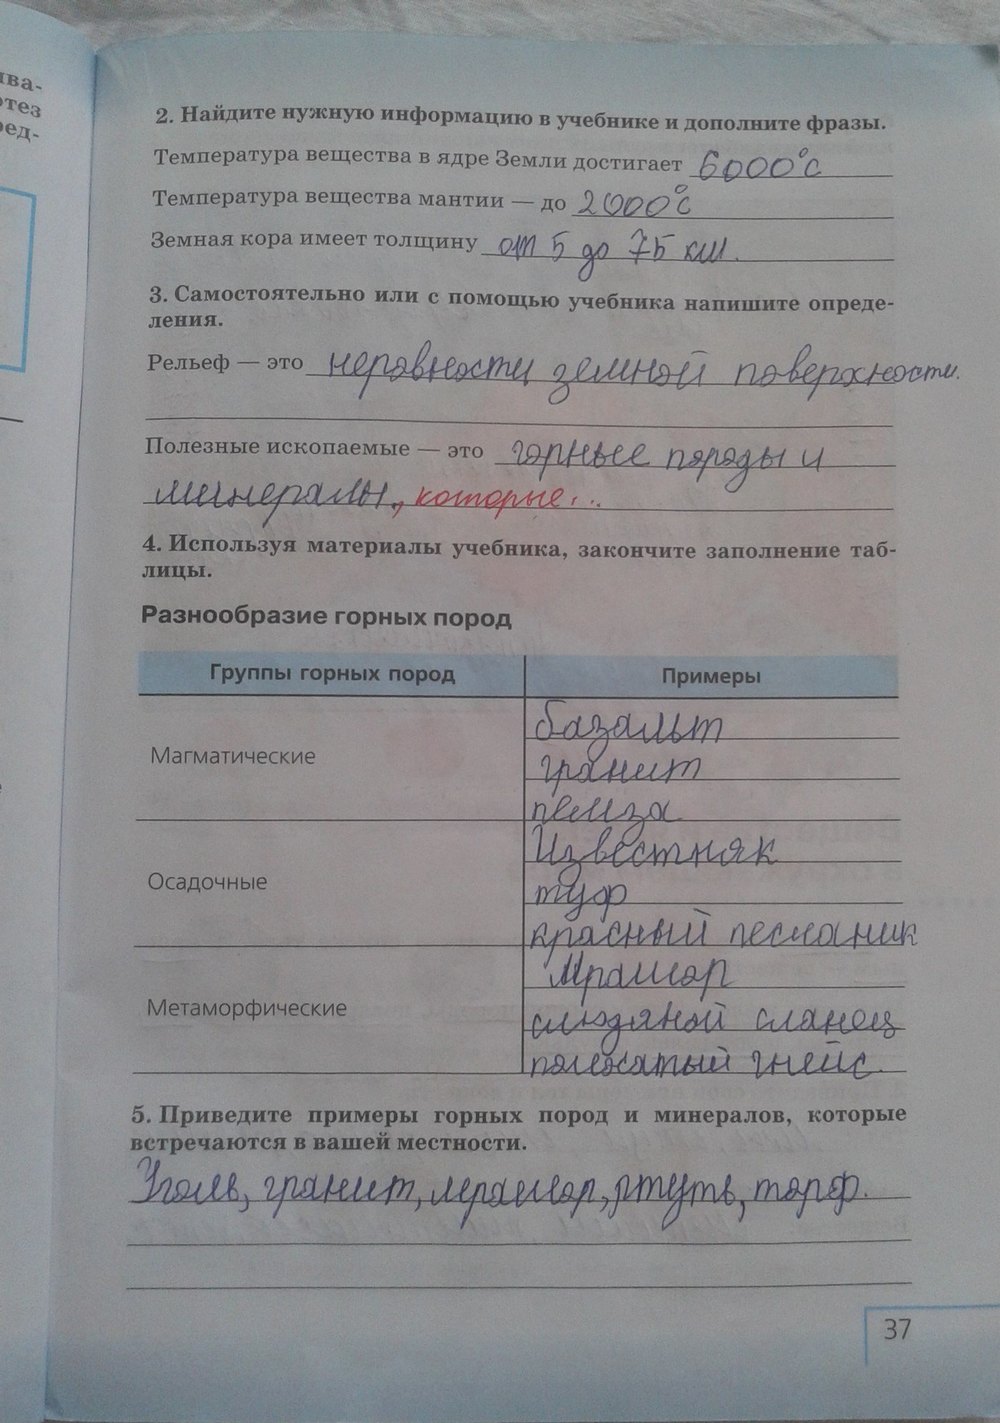 ива-
отез
ред-
2. Найдите нужную информацию в учебнике и дополните фразы.
Температура вещества в ядре Земли достигает 6000°С
Температура вещества мантии — до 2000°С
Земная кора имеет толщину от 5 до 75 км.
3. Самостоятельно или с помощью учебника напишите опреде-
ления.
Рельеф — это неровности земной поверхности.
Полезные ископаемые — это горные породы и
минералы, которые...
4. Используя материалы учебника, закончите заполнение таб-
лицы.
Разнообразие горных пород
Группы горных пород Примеры
базальт
Магматические
гранит
пемза
Известняк
Осадочные
туф
красный песчаник
Мрамор
Метаморфические
слюдяной сланец
полосатый гнейс.
5. Приведите примеры горных пород и минералов, которые
встречаются в вашей местности.
Уголь, гранит, мрамор, ртуть, торф.
37